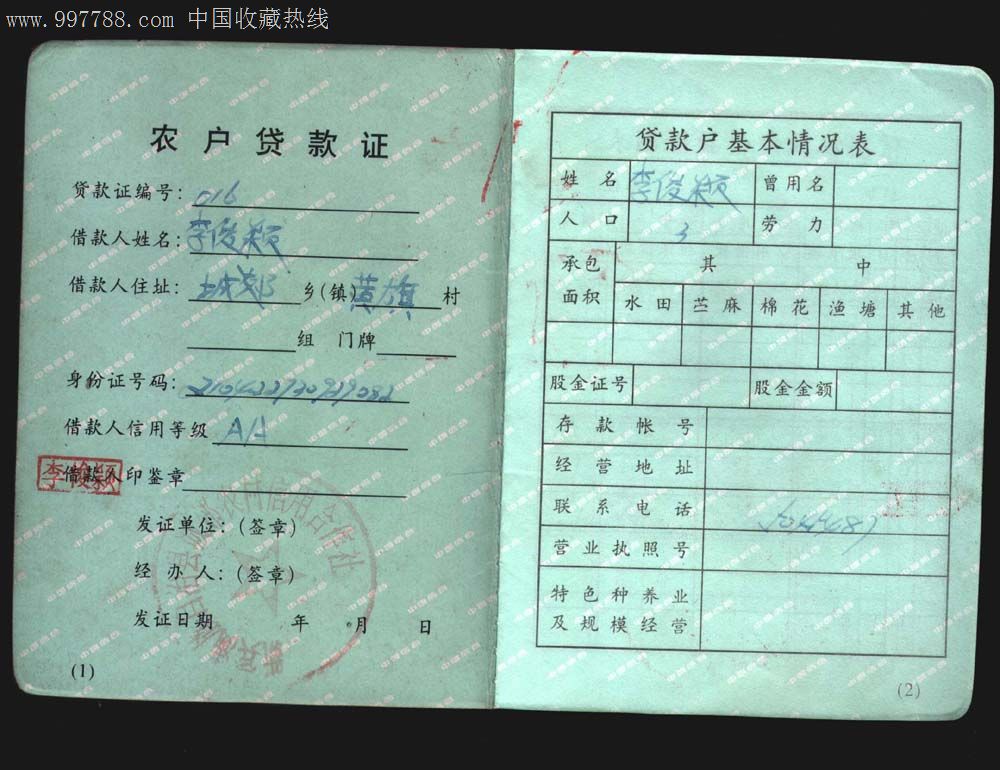 www.997788.com 中国收藏热线
农户贷款证
贷款证编号：016
借款人姓名：李俊颖
借款人住址：城郊乡（镇）黄旗村
组 门牌
身份证号码：
借款人信用等级 AA
借款人印鉴章
李俊颖
发证单位：（签章）
经办人：（签章）
发证日期 年 月 日
(1)
贷款户基本情况表
姓名 李俊颖 曾用名
人口 3 劳力
承包面积 其中
水田 苎麻 棉花 渔塘 其他
股金证号 股金金额
存款帐号
经营地址
联系电话
营业执照号
特色种养业
及规模经营
(2)